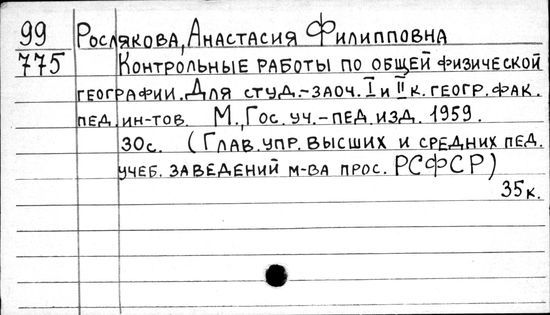 99
775
Рослякова, Анастасия Филипповна
Контрольные работы по общей физической
географии. Для студ.-заоч. I и II к. геогр. фак.
пед. ин-тов. М., Гос. уч.-пед. изд. 1959.
30с. (Глав. упр. высших и средних пед.
учеб. заведений м-ва прос. РСФСР)
35к.